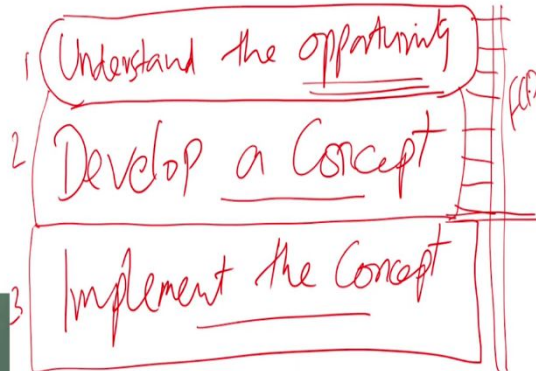 1 Understand the opportunity
2 Develop a Concept
3 Implement the Concept